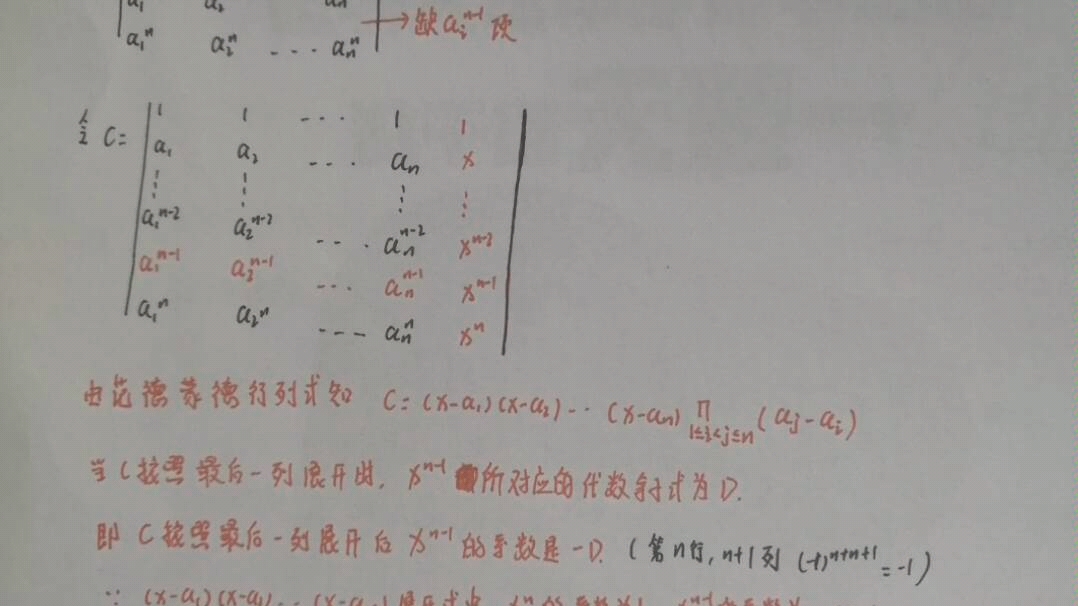 a₁ a₂ aₙ
a₁ⁿ a₂ⁿ ... aₙⁿ → 缺aᵢⁿ⁻¹项
令 C= 1 1 ... 1 1
a₁ a₂ ... aₙ x
⋮ ⋮ ⋮ ⋮
a₁ⁿ⁻² a₂ⁿ⁻² ... aₙⁿ⁻² xⁿ⁻²
a₁ⁿ⁻¹ a₂ⁿ⁻¹ ... aₙⁿ⁻¹ xⁿ⁻¹
a₁ⁿ a₂ⁿ ... aₙⁿ xⁿ
由范德蒙德行列式知 C=(x-a₁)(x-a₂)...(x-aₙ) ∏ 1≤i<j≤n (aⱼ-aᵢ)
当C按照最后一列展开时, xⁿ⁻¹ 所对应的代数余子式为D.
即 C按照最后一列展开后 xⁿ⁻¹的系数是-D. (第n行, n+1列 (-1)ⁿ⁺ⁿ⁺¹=-1)
∵ (x-a₁)(x-a₂)...(x-aₙ)展开式中, xⁿ的系数为1, xⁿ⁻¹的系数为